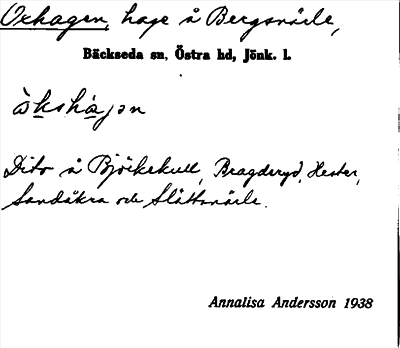 Oxhagen, hage å Bergsnärle,
Bäckseda sn, Östra hd, Jönk. l.
Dito å Björkekull, Bragderyd, Hester,
Sandåkra och Slättsnärle.
Annalisa Andersson 1938